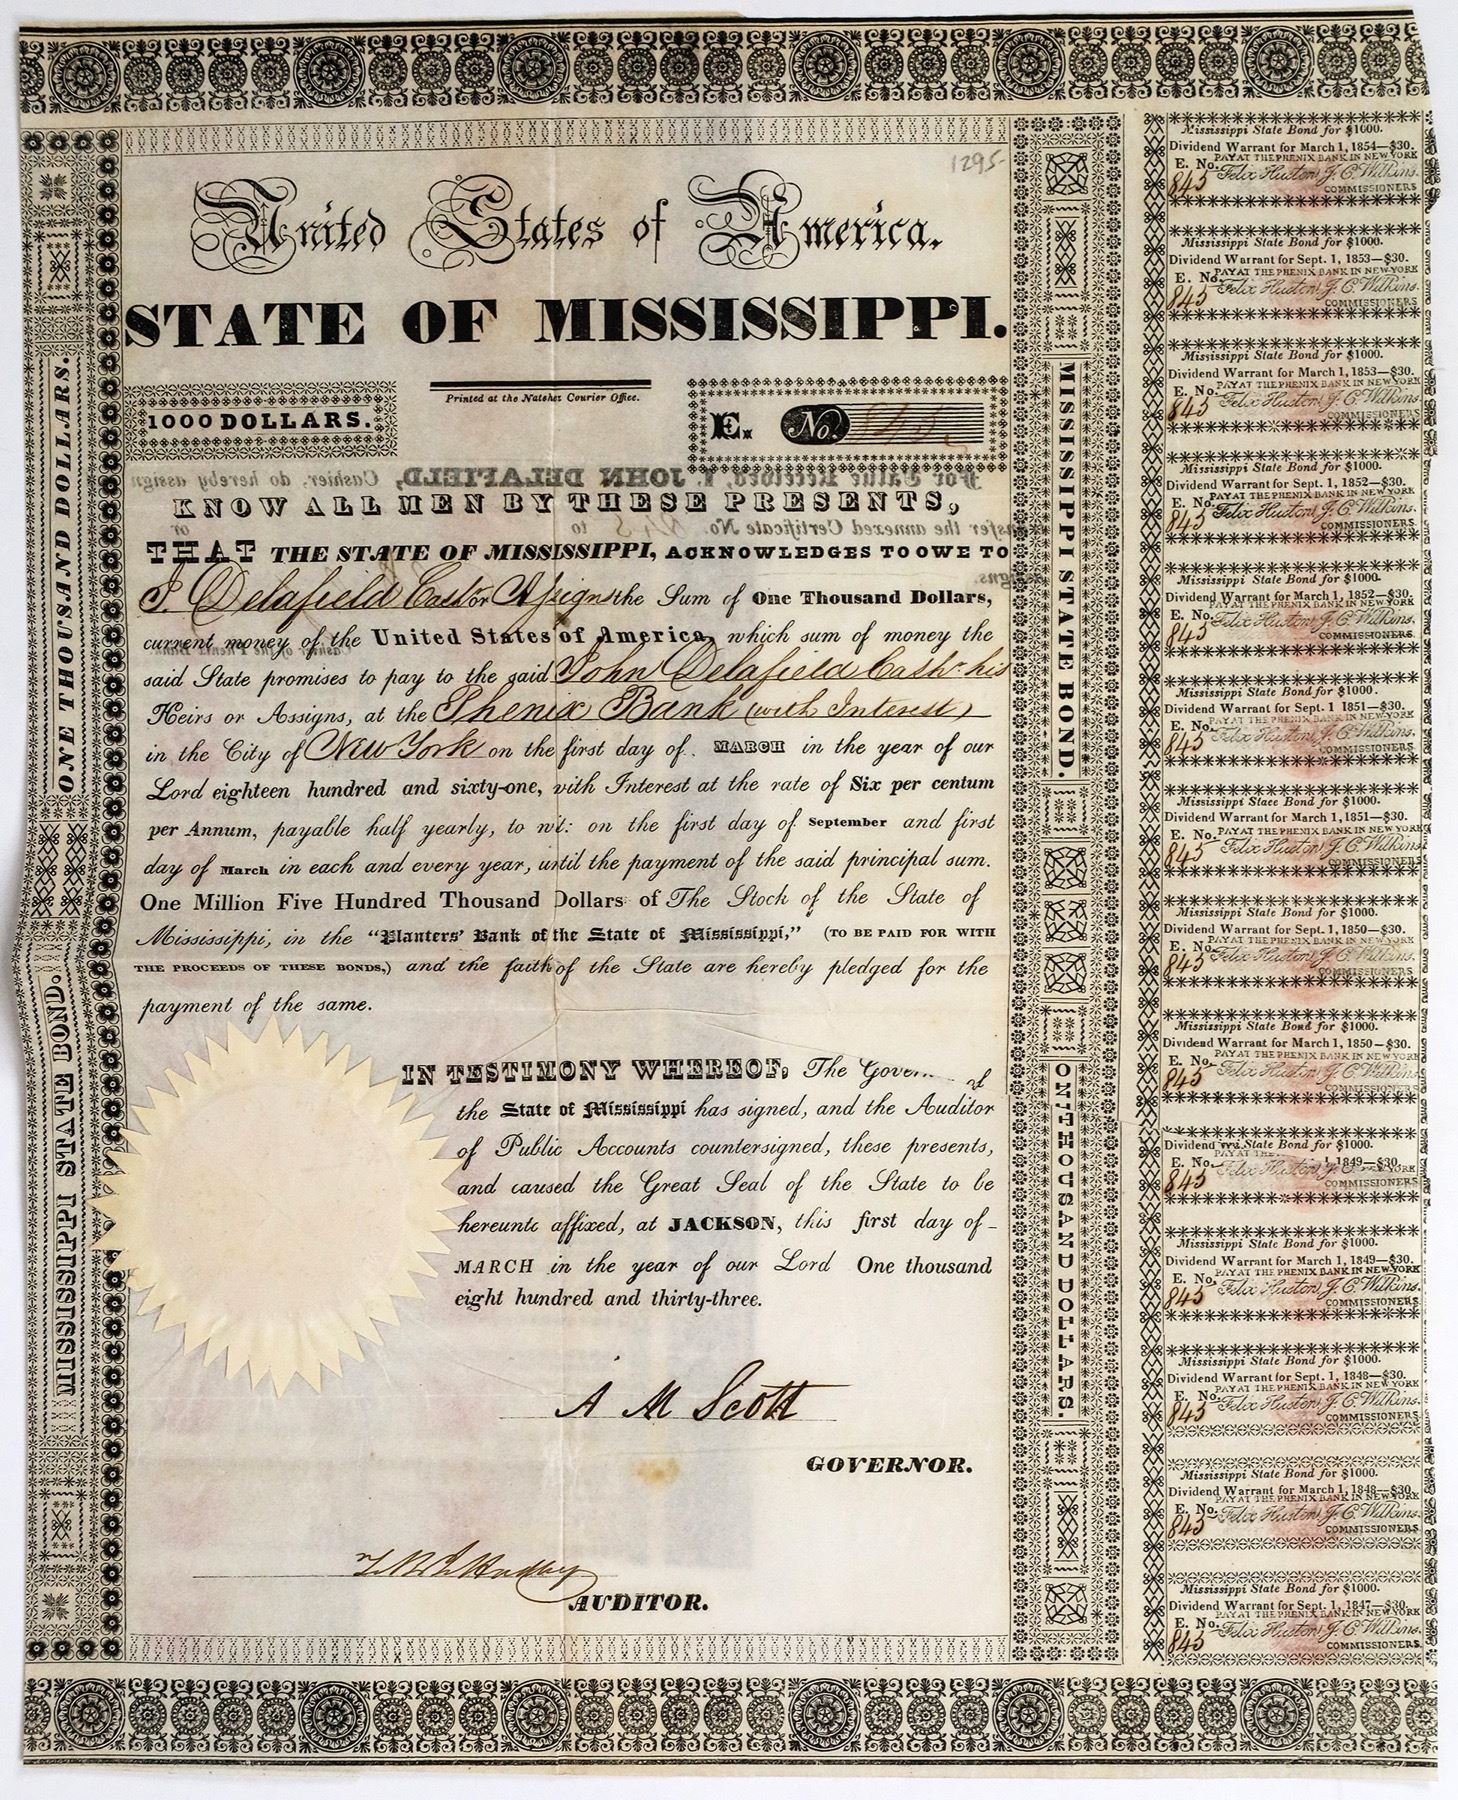 1295-
United States of America.
STATE OF MISSISSIPPI.
Printed at the Natchez Courier Office.
1000 DOLLARS.
E. No. 845
For Value Received, I, JOHN DELAFIELD, Cashier, do hereby assign
KNOW ALL MEN BY THESE PRESENTS,
the annexed Certificate No. 845 to or
THAT THE STATE OF MISSISSIPPI, ACKNOWLEDGES TO OWE TO
J. Delafield Cashr or Assigns the Sum of One Thousand Dollars,
current money of the United States of America, which sum of money the
said State promises to pay to the said John Delafield Cashr his
Heirs or Assigns, at the Phenix Bank (with Interest)
in the City of New York on the first day of MARCH in the year of our
Lord eighteen hundred and sixty-one, with Interest at the rate of Six per centum
per Annum, payable half yearly, to wit: on the first day of September and first
day of March in each and every year, until the payment of the said principal sum.
One Million Five Hundred Thousand Dollars of The Stock of the State of
Mississippi, in the "Planters' Bank of the State of Mississippi," (TO BE PAID FOR WITH
THE PROCEEDS OF THESE BONDS,) and the faith of the State are hereby pledged for the
payment of the same.
IN TESTIMONY WHEREOF, The Gover of
the State of Mississippi has signed, and the Auditor
of Public Accounts countersigned, these presents,
and caused the Great Seal of the State to be
hereunto affixed, at JACKSON, this first day of
MARCH in the year of our Lord One thousand
eight hundred and thirty-three.
A M Scott
GOVERNOR.
AUDITOR.
ONE THOUSAND DOLLARS.
MISSISSIPPI STATE BOND.
MISSISSIPPI STATE BOND.
ONE THOUSAND DOLLARS.
Mississippi State Bond for $1000.
Dividend Warrant for March 1, 1854—$30.
PAY AT THE PHENIX BANK IN NEW YORK
E. No. 845 Felix Huston, J. C. Wilkins.
COMMISSIONERS
Mississippi State Bond for $1000.
Dividend Warrant for Sept. 1, 1853—$30.
PAY AT THE PHENIX BANK IN NEW YORK
E. No. 845 Felix Huston, J. C. Wilkins.
COMMISSIONERS
Mississippi State Bond for $1000.
Dividend Warrant for March 1, 1853—$30.
PAY AT THE PHENIX BANK IN NEW YORK
E. No. 845 Felix Huston, J. C. Wilkins.
COMMISSIONERS
Mississippi State Bond for $1000.
Dividend Warrant for Sept. 1, 1852—$30.
PAY AT THE PHENIX BANK IN NEW YORK
E. No. 845 Felix Huston, J. C. Wilkins.
COMMISSIONERS
Mississippi State Bond for $1000.
Dividend Warrant for March 1, 1852—$30.
PAY AT THE PHENIX BANK IN NEW YORK
E. No. 845 Felix Huston, J. C. Wilkins.
COMMISSIONERS.
Mississippi State Bond for $1000.
Dividend Warrant for Sept. 1 1851—$30.
PAY AT THE PHENIX BANK IN NEW YORK
E. No. 845 Felix Huston, J. C. Wilkins.
COMMISSIONERS
Mississippi State Bond for $1000.
Dividend Warrant for March 1, 1851—$30.
PAY AT THE PHENIX BANK IN NEW YORK
E. No. 845 Felix Huston, J. C. Wilkins.
COMMISSIONERS
Mississippi State Bond for $1000.
Dividend Warrant for Sept. 1, 1850—$30.
PAY AT THE PHENIX BANK IN NEW YORK
E. No. 845 Felix Huston, J. C. Wilkins.
COMMISSIONERS
Mississippi State Bond for $1000.
Dividend Warrant for March 1, 1850—$30.
PAY AT THE PHENIX BANK IN NEW YORK
E. No. 845 Felix Huston, J. C. Wilkins.
COMMISSIONERS
State Bond for $1000.
Dividend 1, 1849—$30
PAY AT THE YORK
E. No. 845 Felix Huston, J. C. Wilkins.
COMMISSIONERS.
Mississippi State Bond for $1000.
Dividend Warrant for March 1, 1849—$30.
PAY AT THE PHENIX BANK IN NEW YORK
E. No. 845 Felix Huston, J. C. Wilkins.
COMMISSIONERS.
Mississippi State Bond for $1000.
Dividend Warrant for Sept. 1, 1848—$30.
PAY AT THE PHENIX BANK IN NEW YORK
E. No. 845 Felix Huston, J. C. Wilkins.
COMMISSIONERS
Mississippi State Bond for $1000.
Dividend Warrant for March 1, 1848—$30.
PAY AT THE PHENIX BANK IN NEW YORK
E. No. 845 Felix Huston, J. C. Wilkins.
COMMISSIONERS
Mississippi State Bond for $1000.
Dividend Warrant for Sept. 1, 1847—$30.
PAY AT THE PHENIX BANK IN NEW YORK
E. No. 845 Felix Huston, J. C. Wilkins.
COMMISSIONERS.